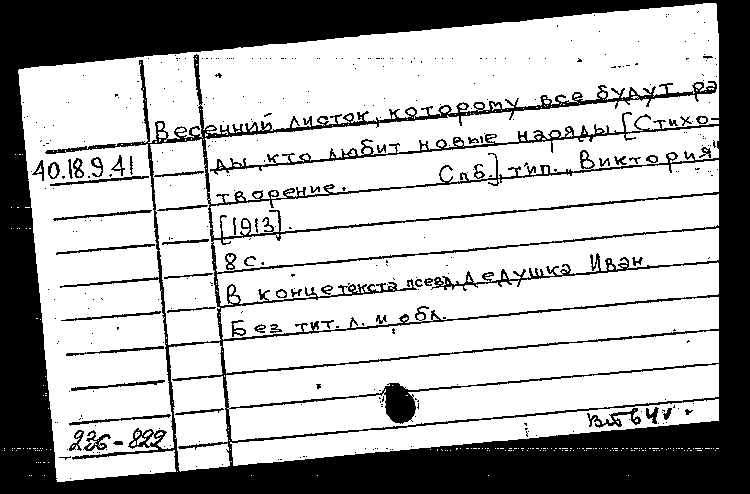 Весенний листок, которому все будут ра
40.18.9.41
ды, кто любит новые наряды. [Стихо-
творение. Спб.], тип. „Виктория"
[1913].
8 с.
В конце текста псевд. Дедушка Иван.
Без тит. л. и обл.
236-822